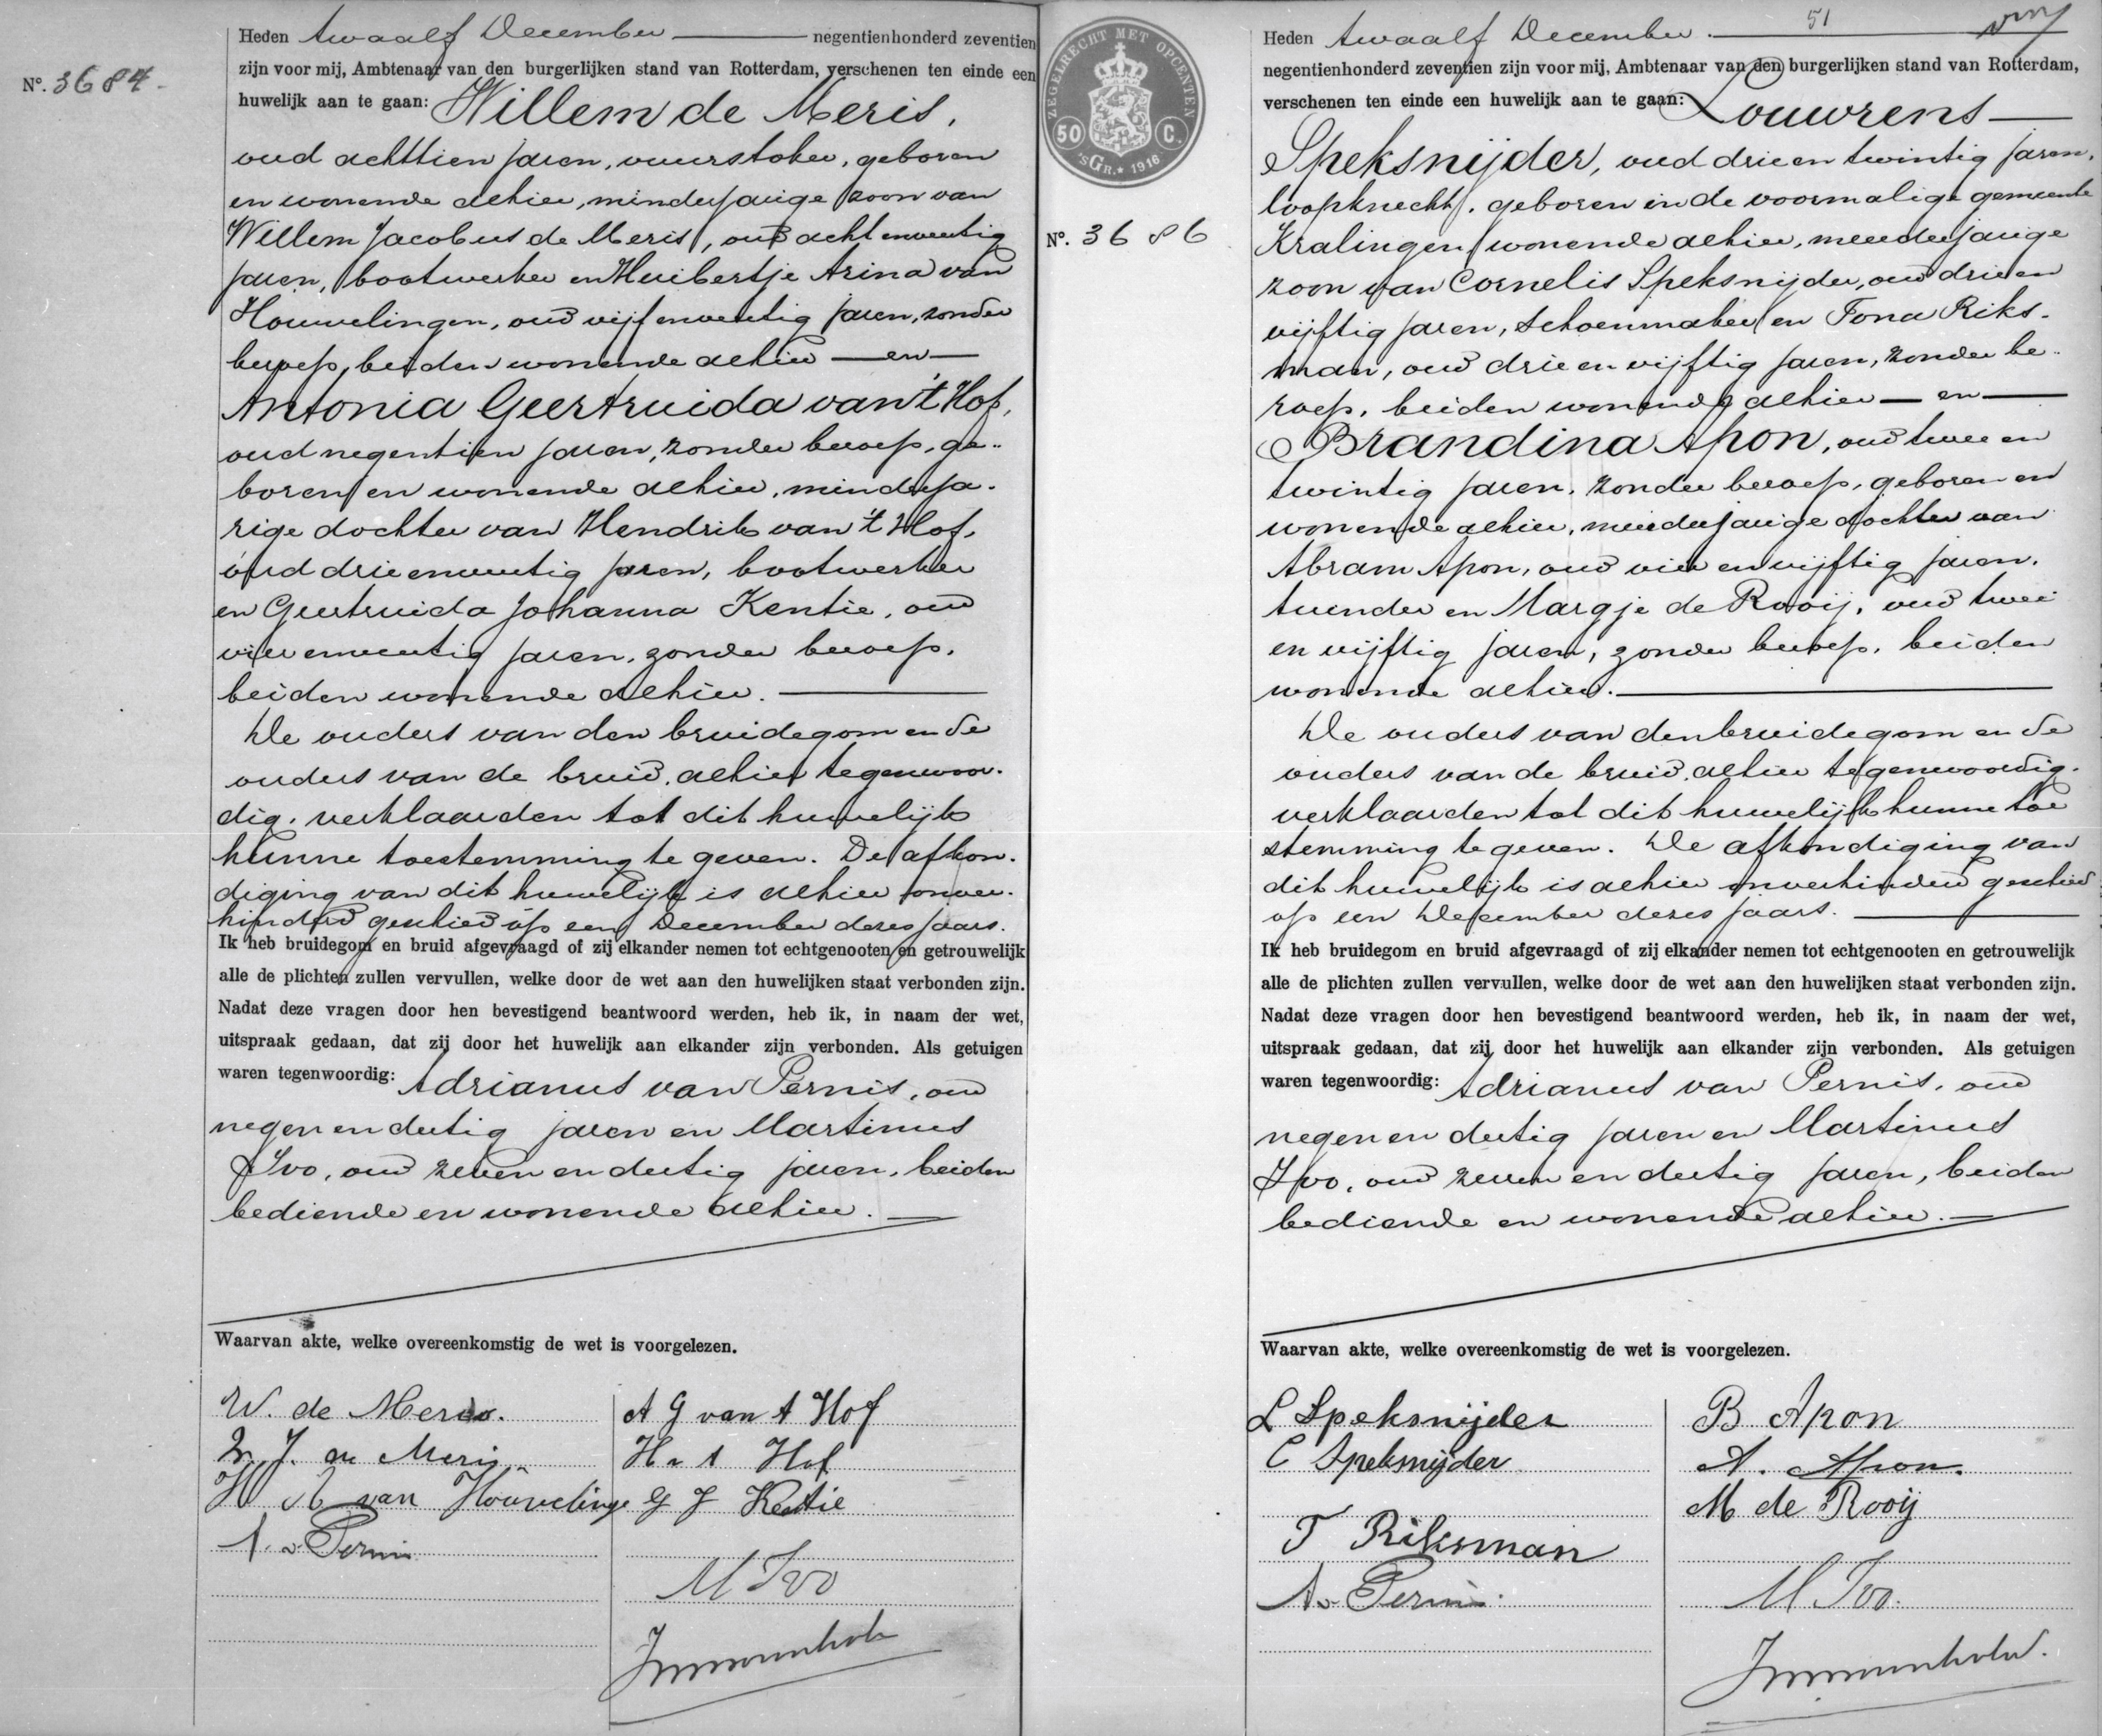 Nº. 3684
Heden twaalf December negentienhonderd zeventien
zijn voor mij, Ambtenaar van den burgerlijken stand van Rotterdam, verschenen ten einde een
huwelijk aan te gaan: Willem de Meris,
oud achttien jaren, vuurstoker, geboren
en wonende alhier, minderjarige zoon van
Willem Jacobus de Meris, oud acht en veertig
jaren, bootwerker en Huibertje Arina van
Houwelingen, oud vijf en veertig jaren, zonder
beroep, beiden wonende alhier — en —
Antonia Geertruida van 't Hof,
oud negentien jaren, zonder beroep, ge-
boren en wonende alhier, minderja-
rige dochter van Hendrik van 't Hof,
oud drie en veertig jaren, bootwerker
en Geertruida Johanna Kentie, oud
vier en veertig jaren, zonder beroep,
beiden wonende alhier.
De ouders van den bruidegom en de
ouders van de bruid, alhier tegenwoor-
dig, verklaarden tot dit huwelijk
hunne toestemming te geven. De afkon-
diging van dit huwelijk is alhier onver-
hinderd geschied op een December dezes jaars.
Ik heb bruidegom en bruid afgevraagd of zij elkander nemen tot echtgenooten en getrouwelijk
alle de plichten zullen vervullen, welke door de wet aan den huwelijken staat verbonden zijn.
Nadat deze vragen door hen bevestigend beantwoord werden, heb ik, in naam der wet,
uitspraak gedaan, dat zij door het huwelijk aan elkander zijn verbonden. Als getuigen
waren tegenwoordig: Adrianus van Pernis, oud
negen en dertig jaren en Martinus
Ivo, oud zeven en dertig jaren, beiden
bediende en wonende alhier.
Waarvan akte, welke overeenkomstig de wet is voorgelezen.
W. de Meris.
A G van t Hof
W. J. de Meris
H v t Hof
H A van Houwelinge
G J Kentie
A. v Pernis
M Ivo
ZEGELRECHT MET OPCENTEN
50 C.
'sGR. 1916
Nº. 3686
51
Heden twaalf December.
negentienhonderd zeventien zijn voor mij, Ambtenaar van den burgerlijken stand van Rotterdam,
verschenen ten einde een huwelijk aan te gaan: Louwrens
Speksnijder, oud drie en twintig jaren,
loopknecht, geboren in de voormalige gemeente
Kralingen, wonende alhier, meerderjarige
zoon van Cornelis Speksnijder, oud drie en
vijftig jaren, schoenmaker en Tona Riks-
man, oud drie en vijftig jaren, zonder be-
roep, beiden wonende alhier — en —
Brandina Apon, oud twee en
twintig jaren, zonder beroep, geboren en
wonende alhier, meerderjarige dochter van
Abram Apon, oud vier en vijftig jaren,
tuinder en Margje de Rooij, oud twee
en vijftig jaren, zonder beroep, beiden
wonende alhier.
De ouders van den bruidegom en de
ouders van de bruid, alhier tegenwoordig,
verklaarden tot dit huwelijk hunne toe
stemming te geven. De afkondiging van
dit huwelijk is alhier onverhinderd geschied
op een December dezes jaars.
Ik heb bruidegom en bruid afgevraagd of zij elkander nemen tot echtgenooten en getrouwelijk
alle de plichten zullen vervullen, welke door de wet aan den huwelijken staat verbonden zijn.
Nadat deze vragen door hen bevestigend beantwoord werden, heb ik, in naam der wet,
uitspraak gedaan, dat zij door het huwelijk aan elkander zijn verbonden. Als getuigen
waren tegenwoordig: Adrianus van Pernis, oud
negen en dertig jaren en Martinus
Ivo, oud zeven en dertig jaren, beiden
bediende en wonende alhier.
Waarvan akte, welke overeenkomstig de wet is voorgelezen.
L Speksnijder
B Apon
C Speksnijder
A. Apon.
T Riksman
M de Rooij
A v Pernis.
M Ivo.